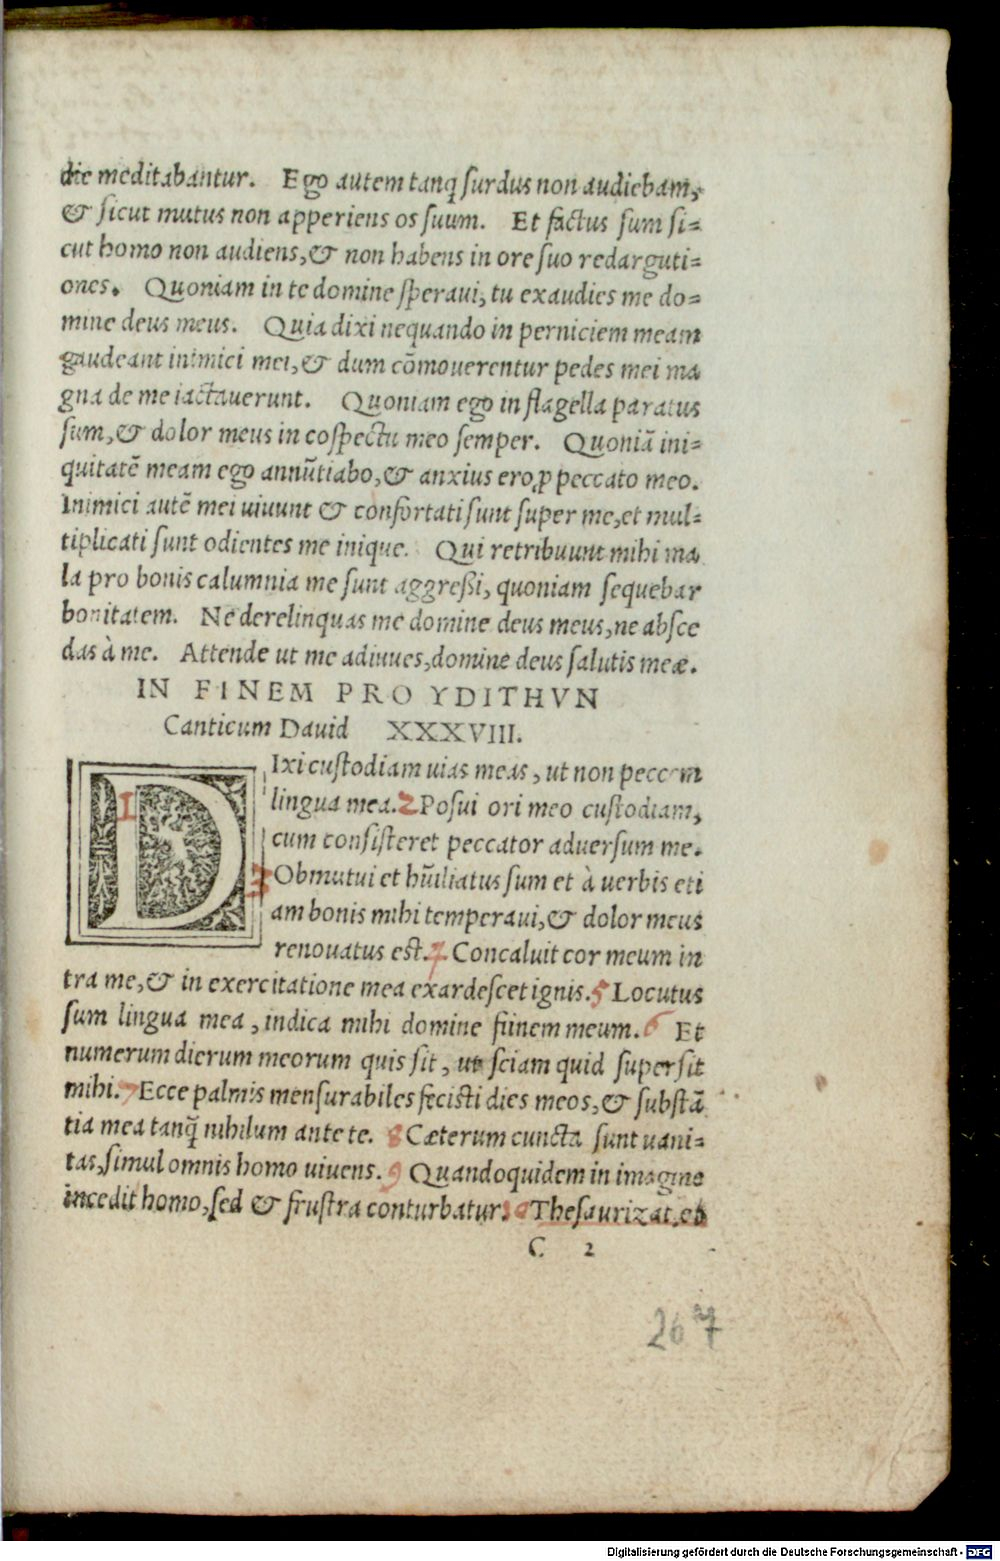 die meditabantur. Ego autem tanq̃ surdus non audiebam,
& sicut mutus non apperiens os suum. Et factus sum si=
cut homo non audiens, & non habens in ore suo redarguti=
ones. Quoniam in te domine speraui, tu exaudies me do=
mine deus meus. Quia dixi nequando in perniciem meam
gaudeant inimici mei, & dum cõmouerentur pedes mei ma
gna de me iactauerunt. Quoniam ego in flagella paratus
sum, & dolor meus in cospectu meo semper. Quoniã ini=
quitatẽ meam ego annũtiabo, & anxius ero ꝓ peccato meo.
Inimici autẽ mei uiuunt & confortati sunt super me, et mul=
tiplicati sunt odientes me inique. Qui retribuunt mihi ma
la pro bonis calumnia me sunt aggreßi, quoniam sequebar
bonitatem. Ne derelinquas me domine deus meus, ne absce
das à me. Attende ut me adiuues, domine deus salutis meæ.
IN FINEM PRO YDITHVN
Canticum Dauid XXXVIII.
1 DIxi custodiam uias meas, ut non peccem
lingua mea. 2 Posui ori meo custodiam,
cum consisteret peccator aduersum me.
3 Obmutui et hũiliatus sum et à uerbis eti
am bonis mihi temperaui, & dolor meus
renouatus est. 4 Concaluit cor meum in
tra me, & in exercitatione mea exardescet ignis. 5 Locutus
sum lingua mea, indica mihi domine fiinem meum. 6 Et
numerum dierum meorum quis sit, ut sciam quid supersit
mihi. 7 Ecce palmis mensurabiles fecisti dies meos, & substã
tia mea tanq̃ nihilum ante te. 8 Cæterum cuncta sunt uani=
tas, simul omnis homo uiuens. 9 Quandoquidem in imagine
incedit homo, sed & frustra conturbatur. 10 Thesaurizat, et
C 2
267
Digitalisierung gefördert durch die Deutsche Forschungsgemeinschaft - DFG